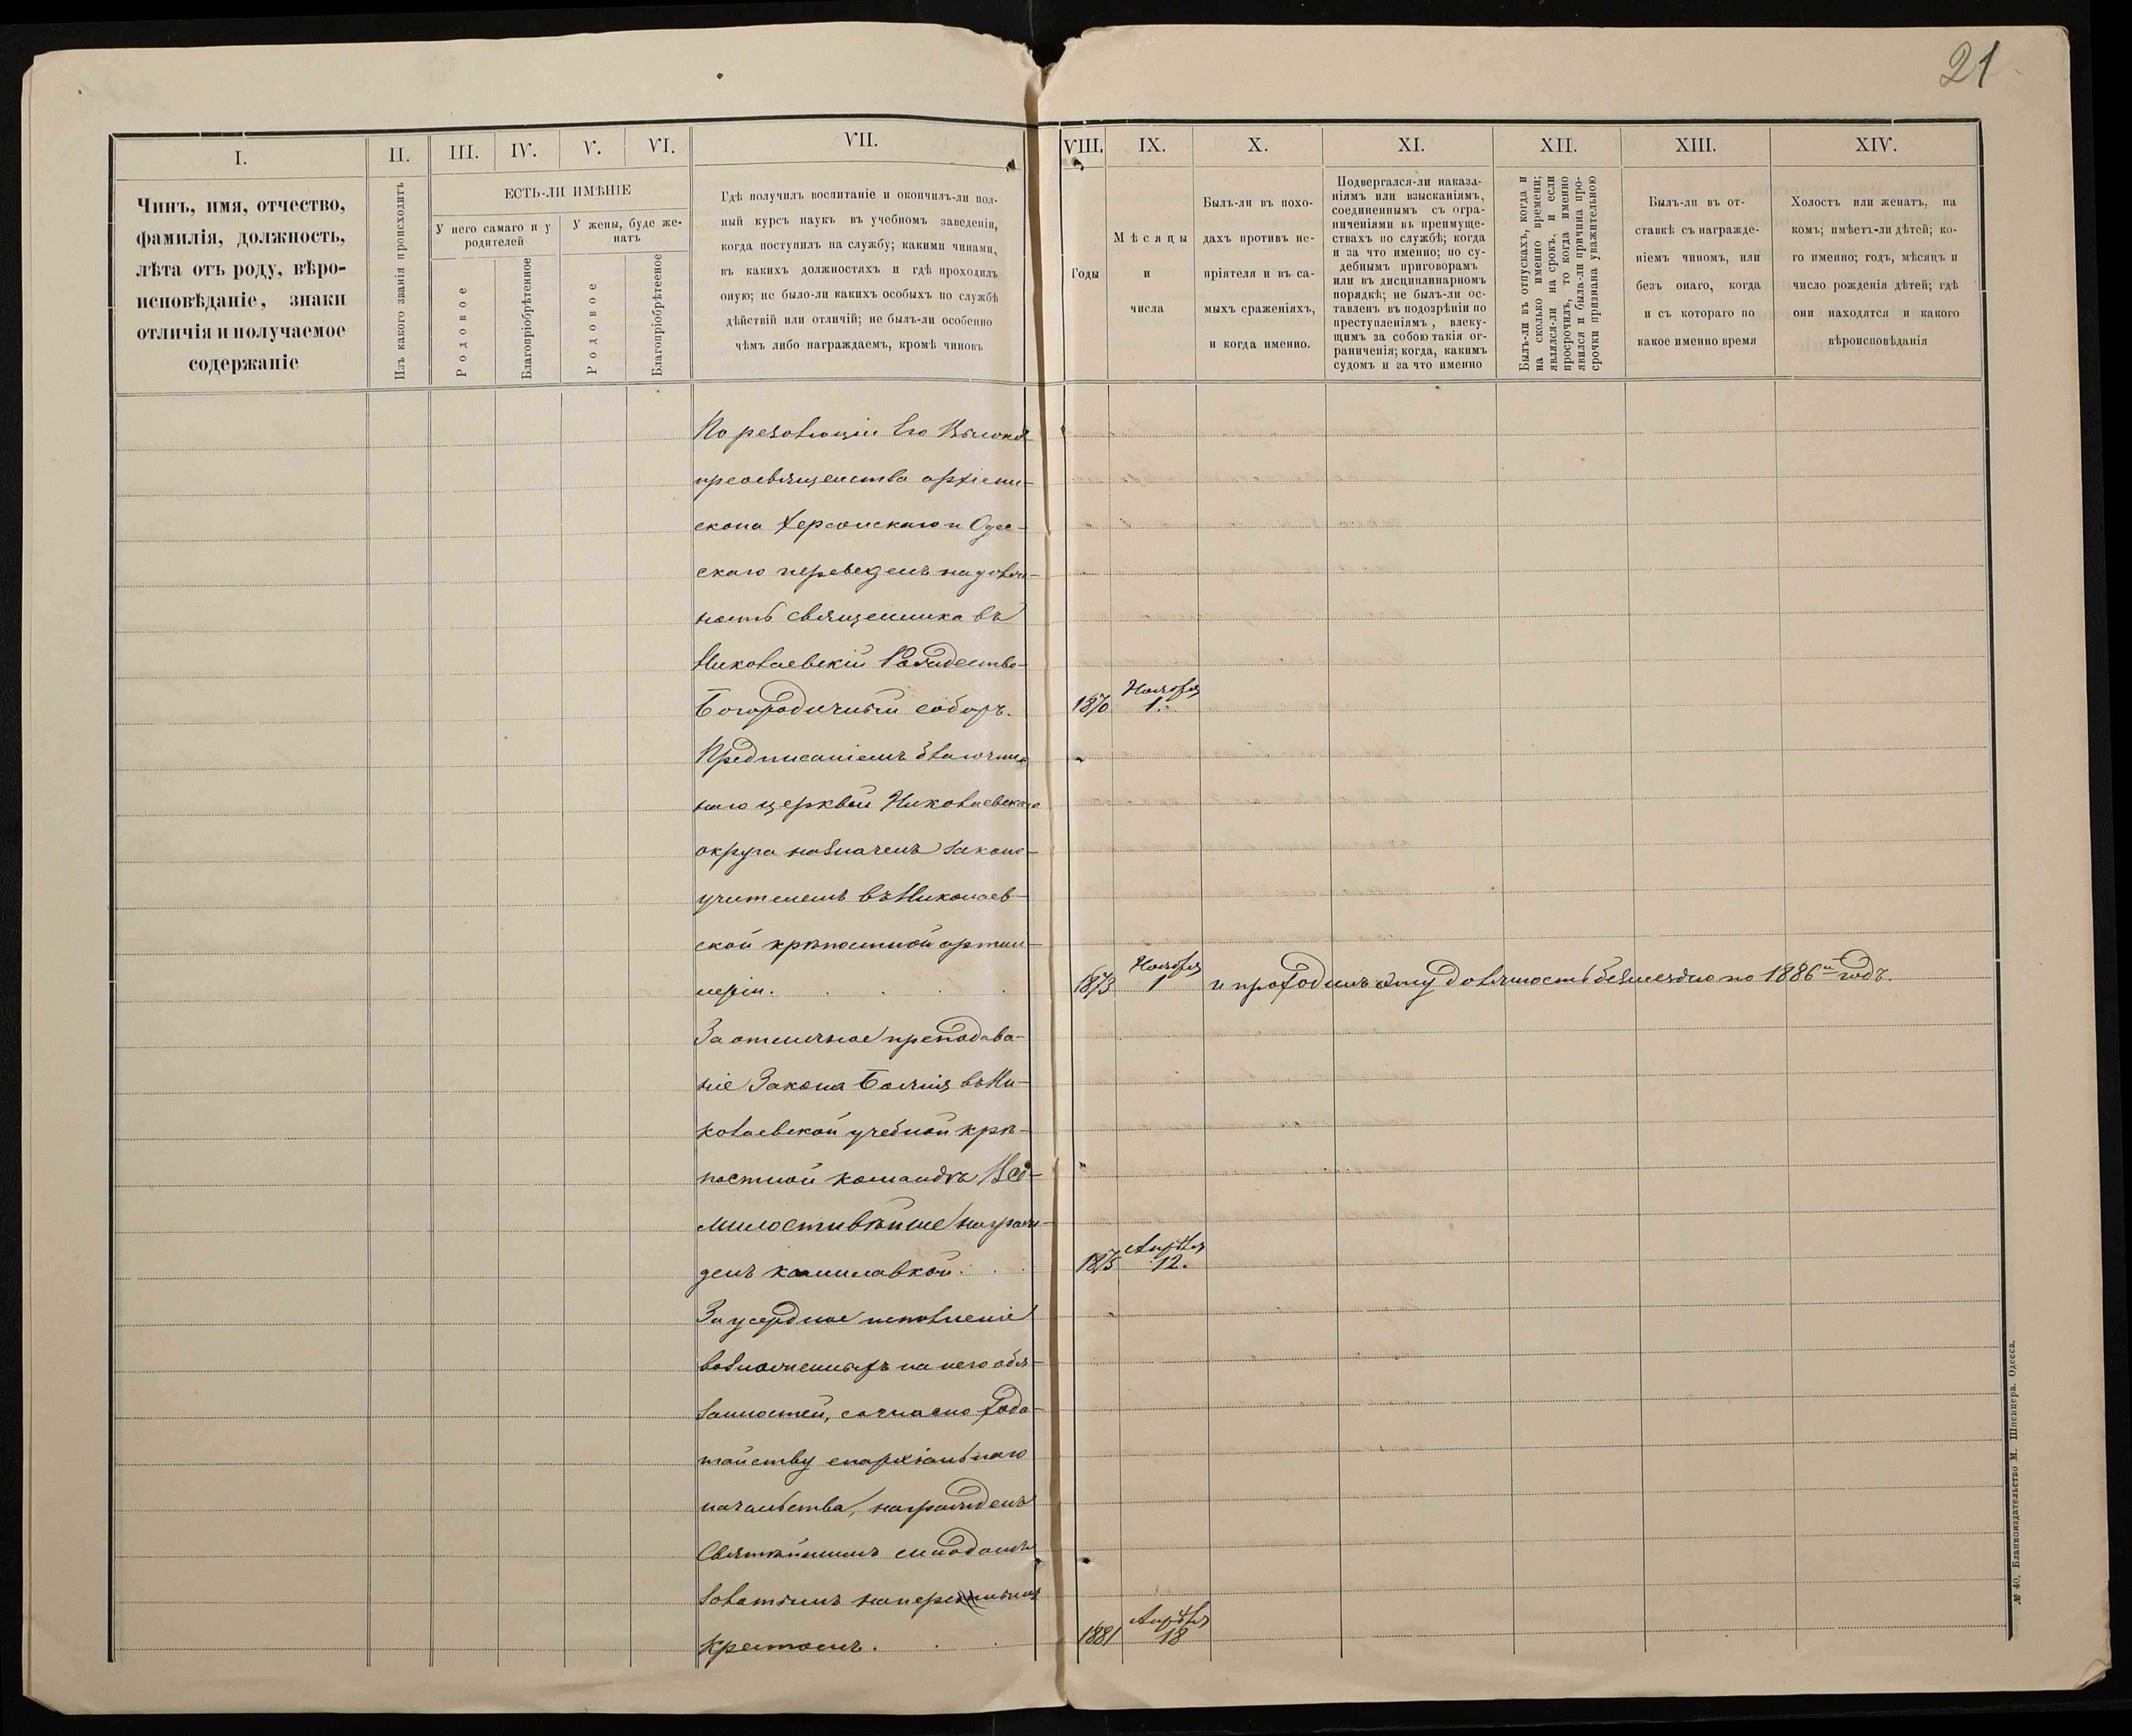 21
I.
II.
III.
IV.
V.
VI.
VII.
VIII.
IX.
X.
XI.
XII.
XIII.
XIV.
Чинъ, имя, отчество,
фамилія, должность,
лѣта отъ роду, вѣро-
исповѣданіе, знаки
отличія и получаемое
содержаніе
Изъ какого званія происходитъ
ЕСТЬ-ЛИ ИМѢНІЕ
У него самаго и у
родителей
У жены, буде же-
натъ
Родовое
Благопріобрѣтенное
Родовое
Благопріобрѣтенное
Гдѣ получилъ воспитаніе и окончилъ-ли пол-
ный курсъ наукъ въ учебномъ заведеніи,
когда поступилъ на службу; какими чинами,
въ какихъ должностяхъ и гдѣ проходилъ
оную; не было-ли какихъ особыхъ по службѣ
дѣйствій или отличій; не былъ-ли особенно
чѣмъ либо награждаемъ, кромѣ чиновъ
Годы
Мѣсяцы
и
числа
Былъ-ли въ похо-
дахъ противъ не-
пріятеля и въ са-
мыхъ сраженіяхъ,
и когда именно.
Подвергался-ли наказа-
ніямъ или взысканіямъ,
соединеннымъ съ огра-
ниченіями въ преимуще-
ствахъ по службѣ; когда
и за что именно; по су-
дебнымъ приговорамъ
или въ дисциплинарномъ
порядкѣ; не былъ-ли ос-
тавленъ въ подозрѣніи по
преступленіямъ, влеку-
щимъ за собою такія ог-
раниченія; когда, какимъ
судомъ и за что именно
Былъ-ли въ отпускахъ, когда и
на сколько именно времени;
являлся-ли на срокъ, и если
просрочилъ, то когда именно
явился и была-ли причина про-
срочки признана уважительною
Былъ-ли въ от-
ставкѣ съ награжде-
ніемъ чиномъ, или
безъ онаго, когда
и съ котораго по
какое именно время
Холостъ или женатъ, на
комъ; имѣетъ-ли дѣтей; ко-
го именно; годъ, мѣсяцъ и
число рожденія дѣтей; гдѣ
они находятся и какого
вѣроисповѣданія
По резолюціи Его Высоко
преосвященства архіепи-
скопа Херсонскаго и Одес-
скаго переведенъ на долж-
ность священника въ
Николаевскій Рождество-
Богородичный соборъ. 1870 Ноября 1.
Предписаніемъ благочин-
наго церквей Николаевскаго
округа назначенъ законо-
учителемъ въ Николаев-
ской крѣпостной артил-
леріи. 1873 Ноября 1 и проходилъ эту должность безмездно по 1886й годъ.
За отличное преподава-
ніе Закона Божія въ Ни-
колаевской учебной крѣ-
постной командѣ Все-
милостивѣйше награж-
денъ камилавкой. 1875 Апрѣля 12.
За усердное исполненіе
возложенныхъ на него обя-
занностей, согласно хода-
тайству епархіальнаго
начальства, награжденъ
Святѣйшимъ синодомъ
золотымъ наперснымъ
крестомъ. 1881 Апрѣля 18
№ 40. Бланкоиздательство М. Шпенцера. Одесса.